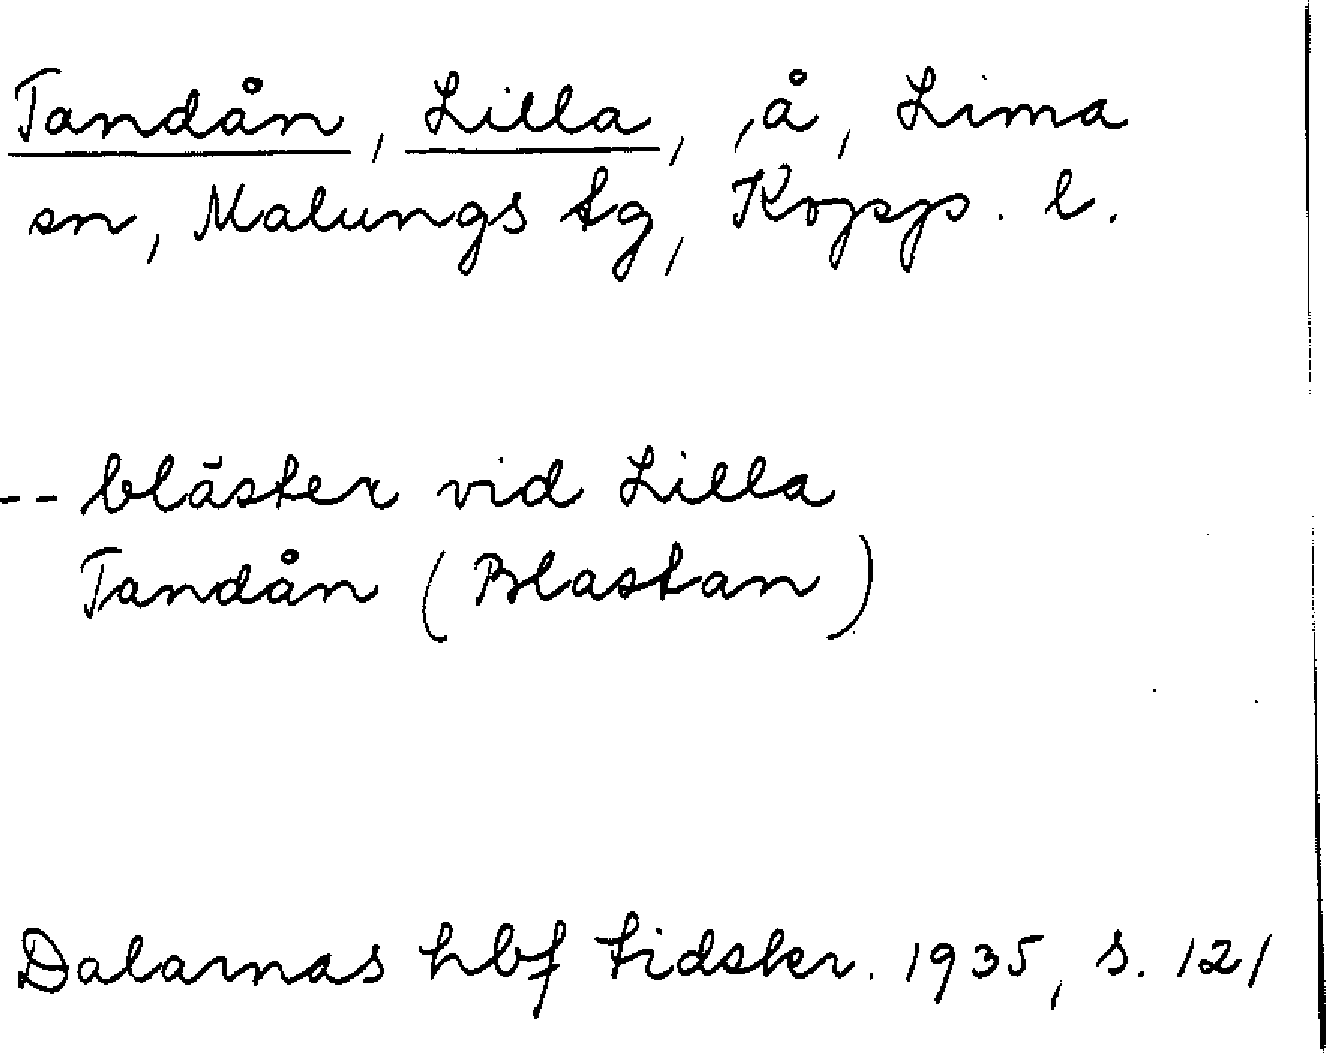 Tandån, Lilla, ,å, Lima
sn, Malungs tg, Kopp. l.
-- bläster vid Lilla
Tandån (Blastan)
Dalarnas hbf tidskr. 1935, s. 121